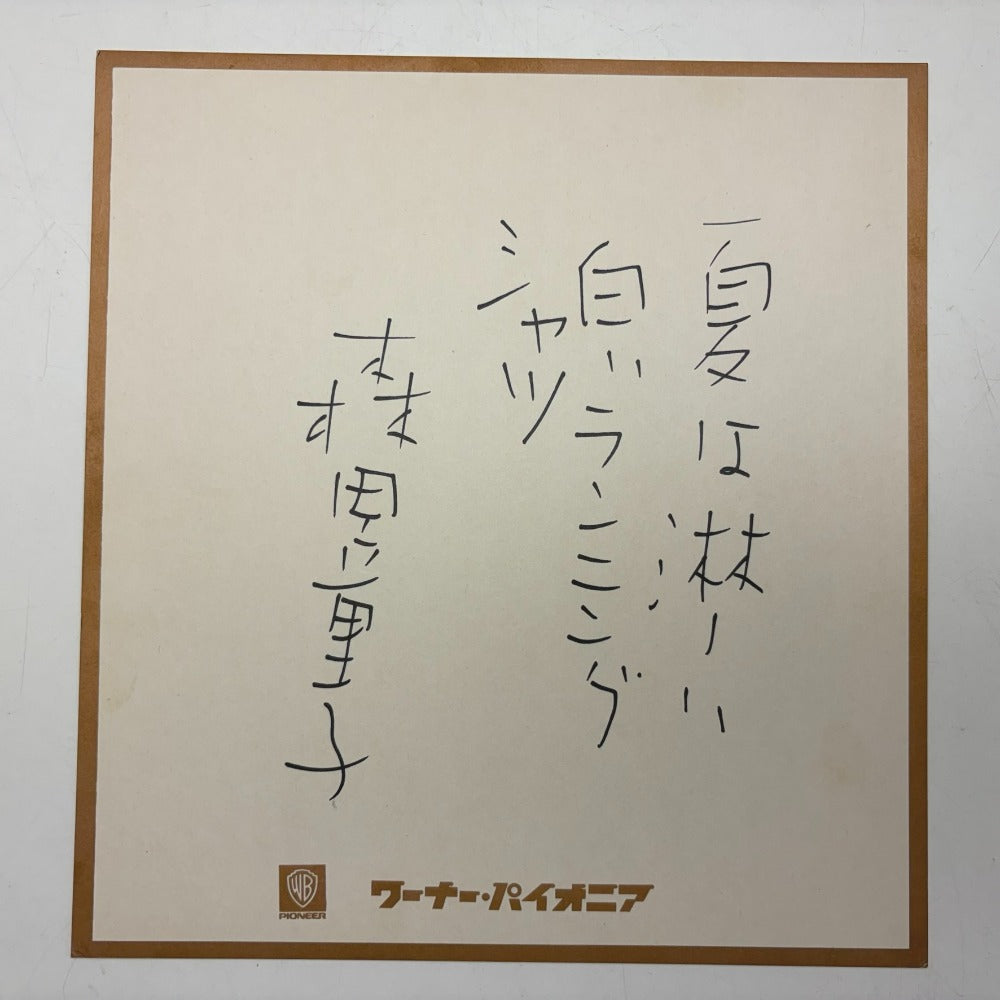 夏は淋しい
白いランニング
シャツ
森田童子
WB
PIONEER
ワーナー・パイオニア